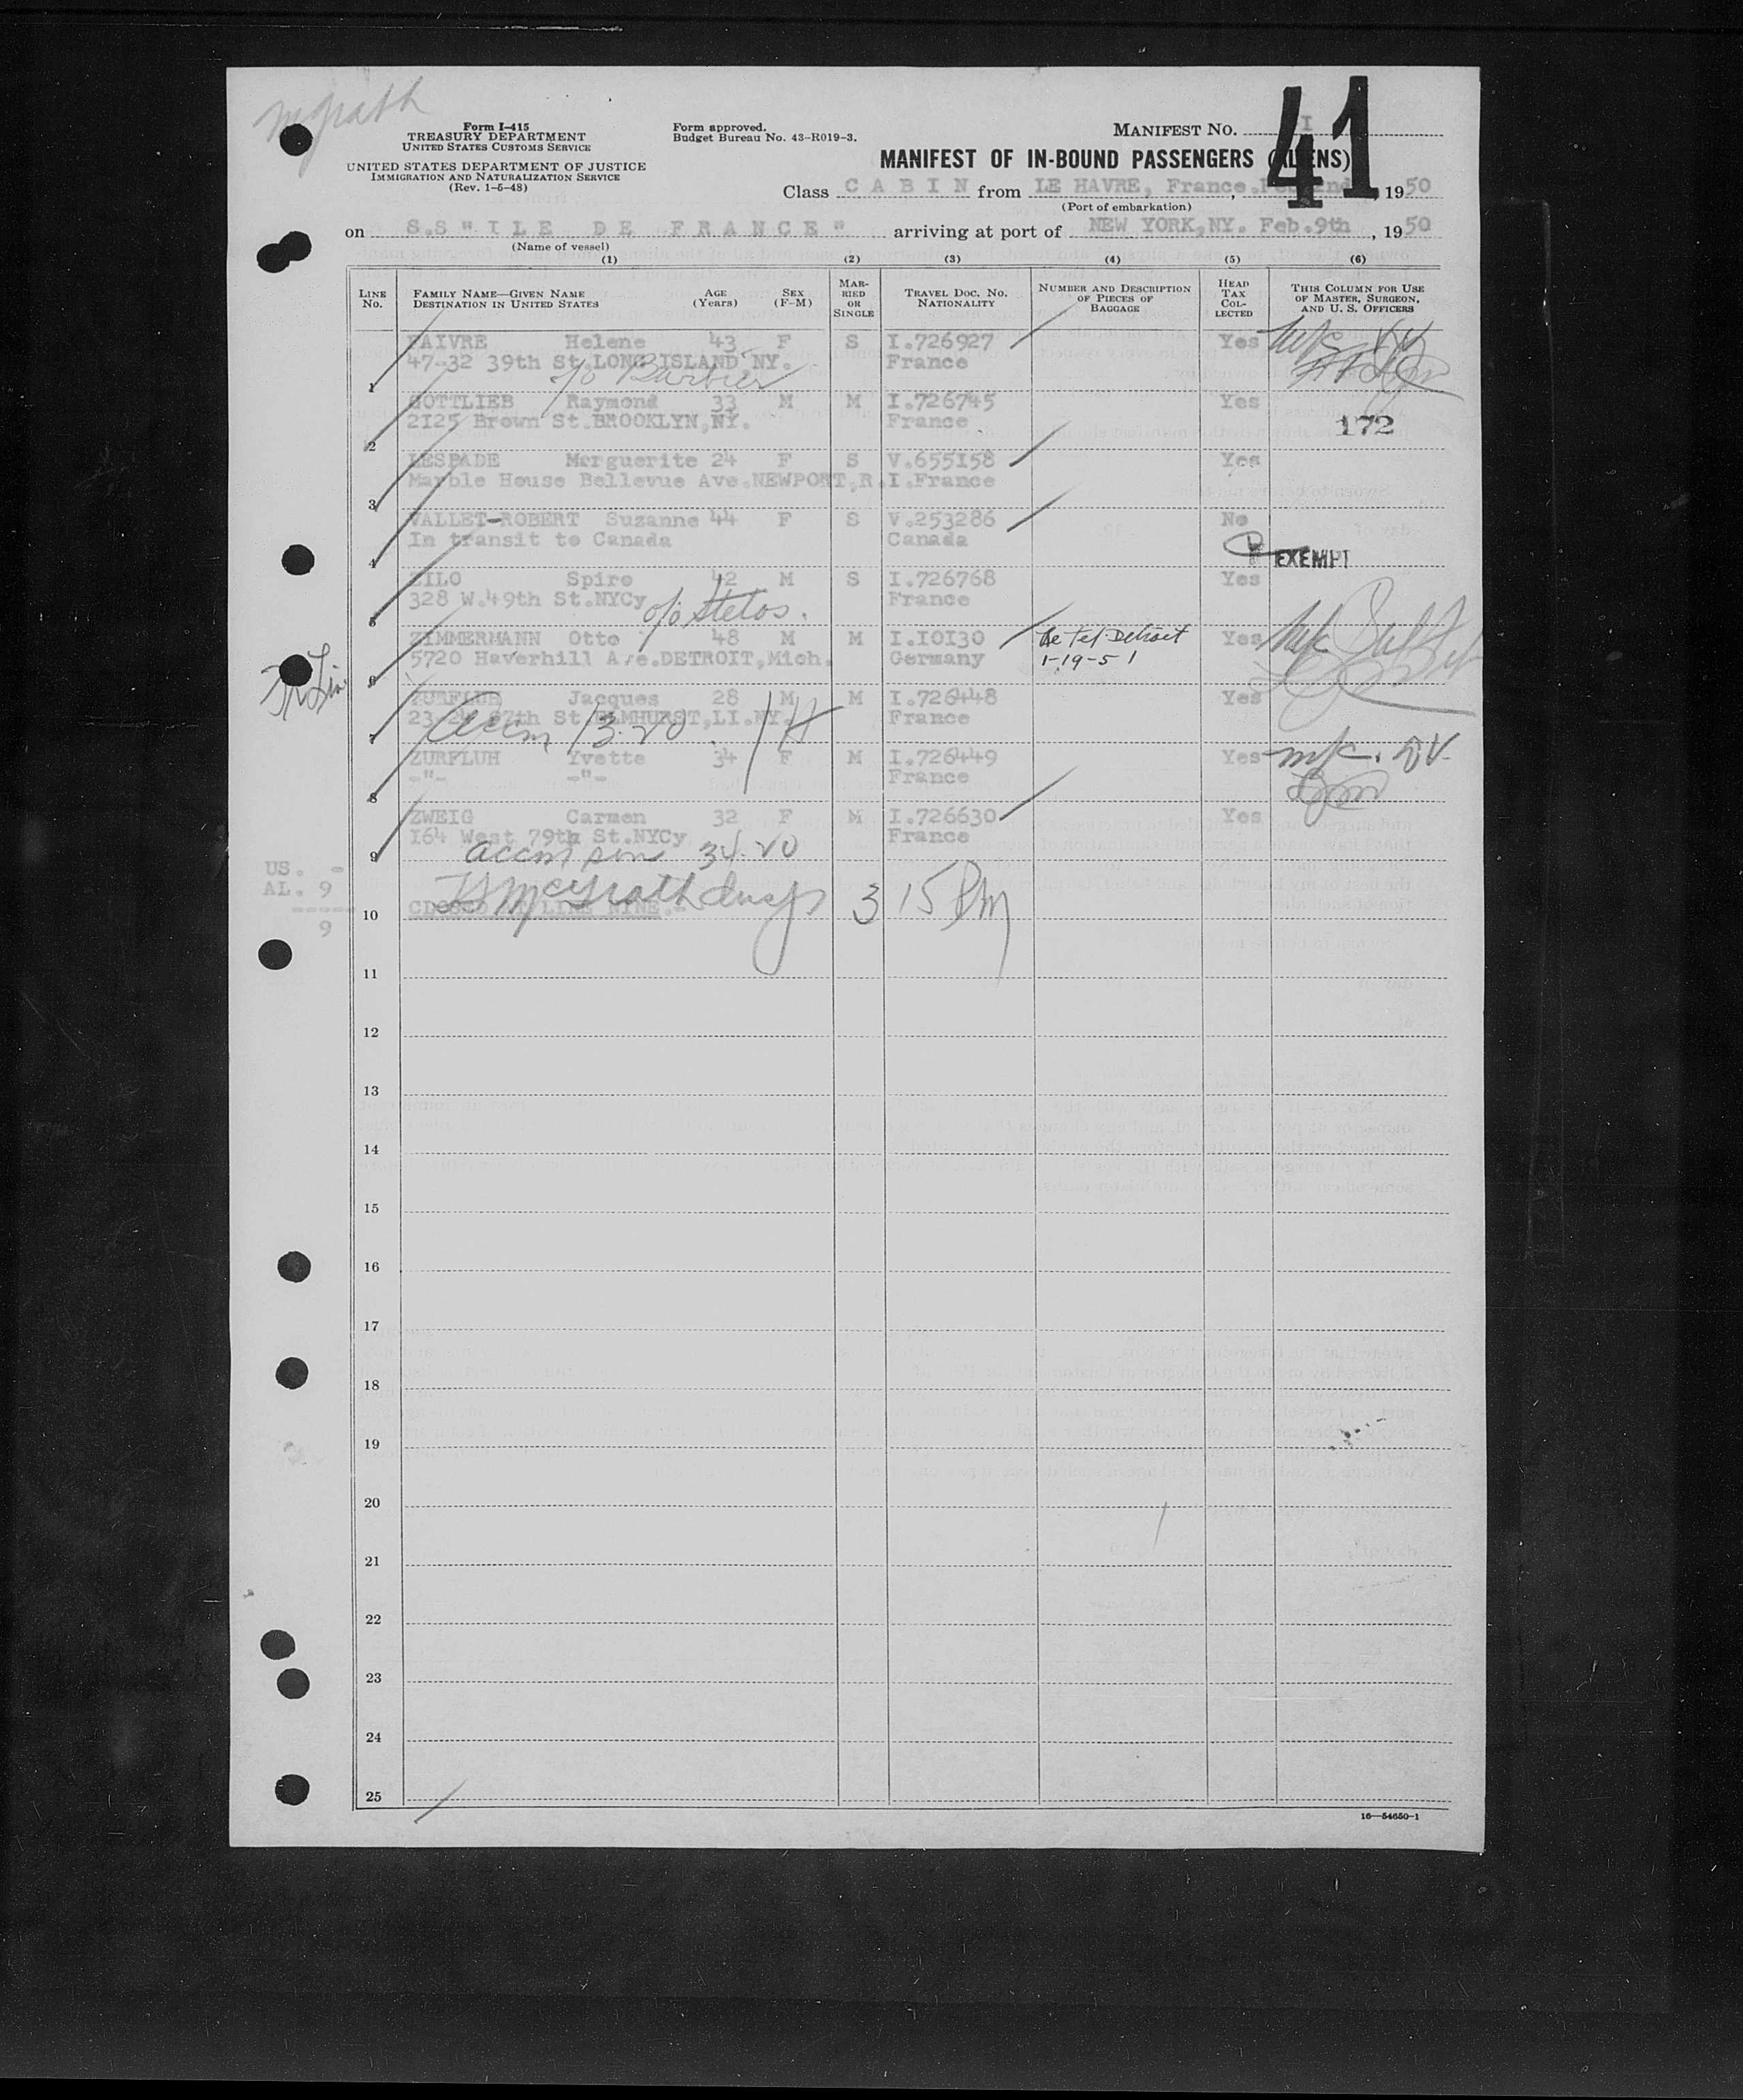 McGrath
41
Form I-415
TREASURY DEPARTMENT
UNITED STATES CUSTOMS SERVICE
UNITED STATES DEPARTMENT OF JUSTICE
IMMIGRATION AND NATURALIZATION SERVICE
(Rev. 1-5-48)
Form approved.
Budget Bureau No. 43-R019-3.
MANIFEST NO. I
MANIFEST OF IN-BOUND PASSENGERS (ALIENS)
Class CABIN from LE HAVRE, France. , 1950
(Port of embarkation)
on S.S "ILE DE FRANCE" arriving at port of NEW YORK,NY. Feb.9th , 1950
(Name of vessel)
(1) (2) (3) (4) (5) (6)
LINE No. FAMILY NAME—GIVEN NAME DESTINATION IN UNITED STATES AGE (Years) SEX (F-M) MARRIED OR SINGLE TRAVEL DOC. NO. NATIONALITY NUMBER AND DESCRIPTION OF PIECES OF BAGGAGE HEAD TAX COLLECTED THIS COLUMN FOR USE OF MASTER, SURGEON, AND U. S. OFFICERS
FAIVRE Helene 43 F S I.726927 Yes
1 47-32 39th St.LONG ISLAND NY. France
c/o Barbier
GOTTLIEB Raymond 33 M M I.726745 Yes
2 2I25 Brown St.BROOKLYN,NY. France 172
LESPADE Merguerite 24 F S V.655I58 Yes
3 Marble House Bellevue Ave.NEWPORT,R.I.France
VALLET-ROBERT Suzanne 44 F S V.253286 No
4 In transit to Canada Canada EXEMPT
ZILO Spiro 42 M S I.726768 Yes
5 328 W.49th St.NYCy c/o Stelos. France
ZIMMERMANN Otto 48 M M I.I0I30 Re tel Detroit Yes
6 5720 Haverhill Ave.DETROIT,Mich. Germany 1-19-51
ZURFLUH Jacques 28 M M I.726448 Yes
7 87th St.ELMHURST,LI.NY. France
ZURFLUH Yvette 34 F M I.726449 Yes
8 -"- -"- France
ZWEIG Carmen 32 F M I.726630 Yes
9 I64 West 79th St.NYCy France
accm son 34.20
US. -
AL. 9
-----
9
McGrath Insp 3 15 PM
10 CLOSED AT LINE NINE.-
11
12
13
14
15
16
17
18
19
20
21
22
23
24
25
16—54650-1